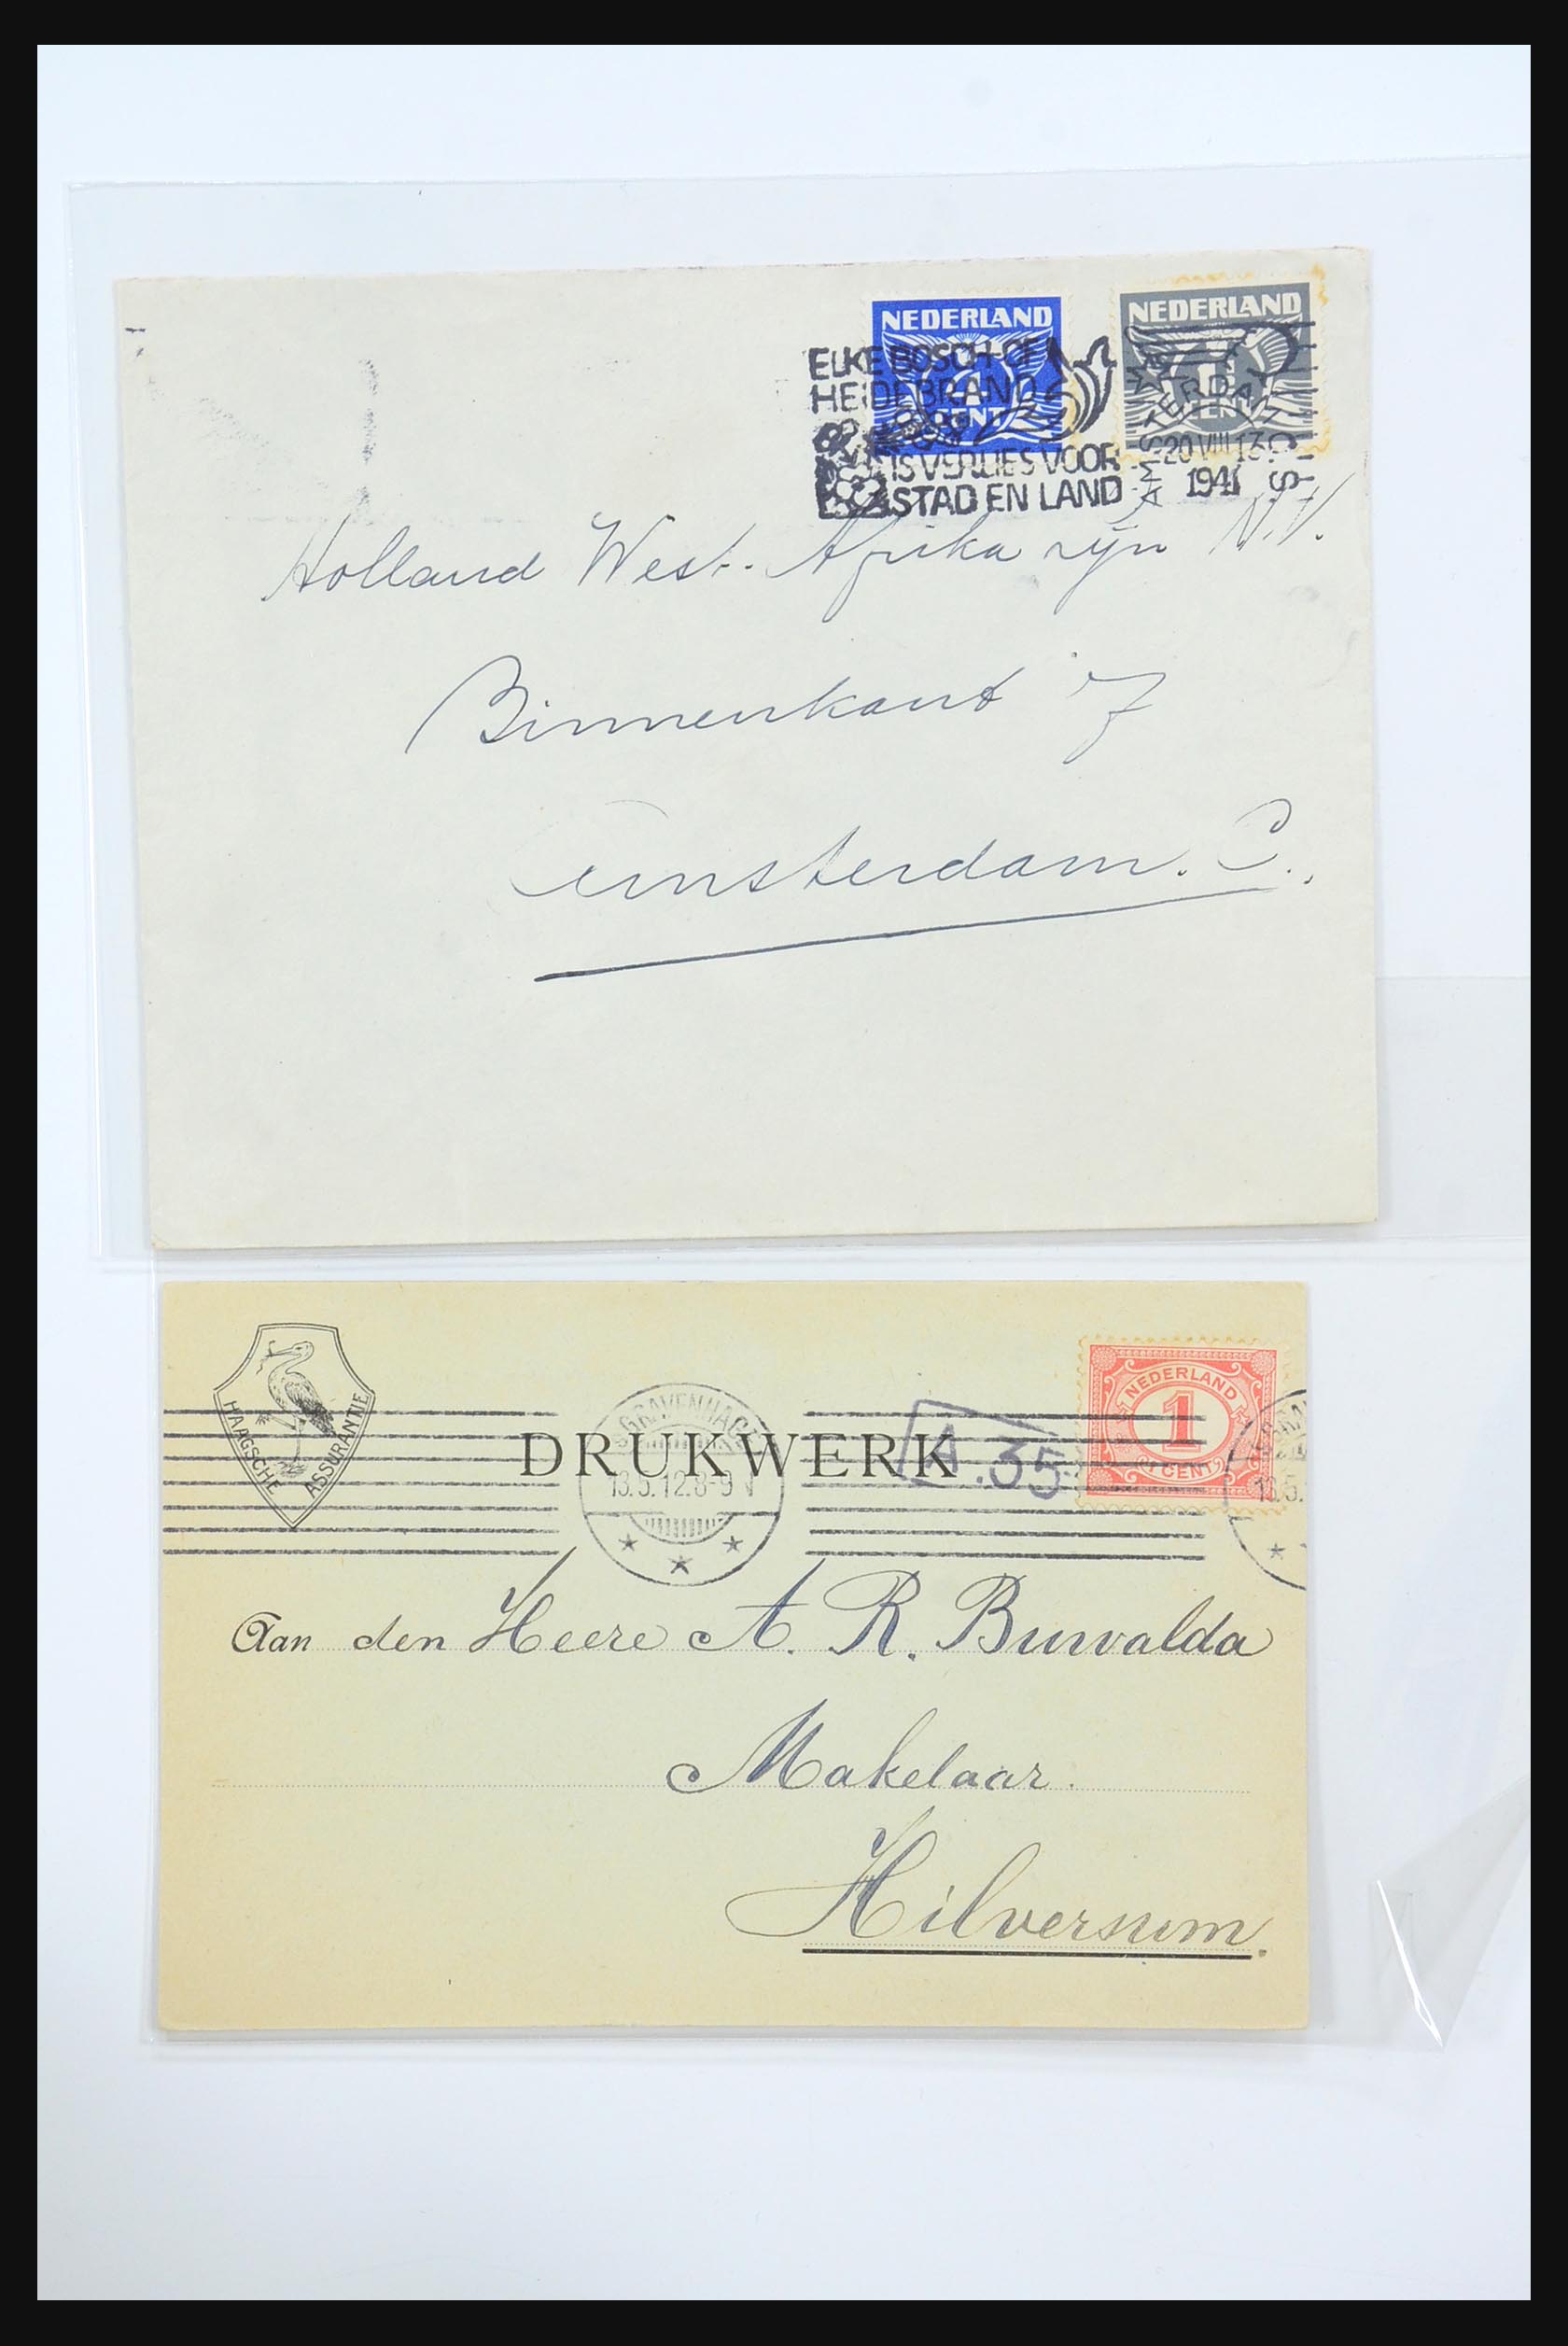 NEDERLAND
4
CENT
NEDERLAND
1
CENT
ELKE BOSCH-OF
HEIDEBRAND
IS VERLIES VOOR
STAD EN LAND
AMSTERDAM C.S.
20 VIII 13
1941
Holland West. Afrika Lijn N.V.
Binnenkant 17
Amsterdam. C.
HAAGSCHE
ASSURANTIE
'S GRAVENHAGE
13.5.12.8-9 V
DRUKWERK
A.35
NEDERLAND
1
1 CENT
Aan den Heere A. R. Buwalda
Makelaar.
Hilversum.